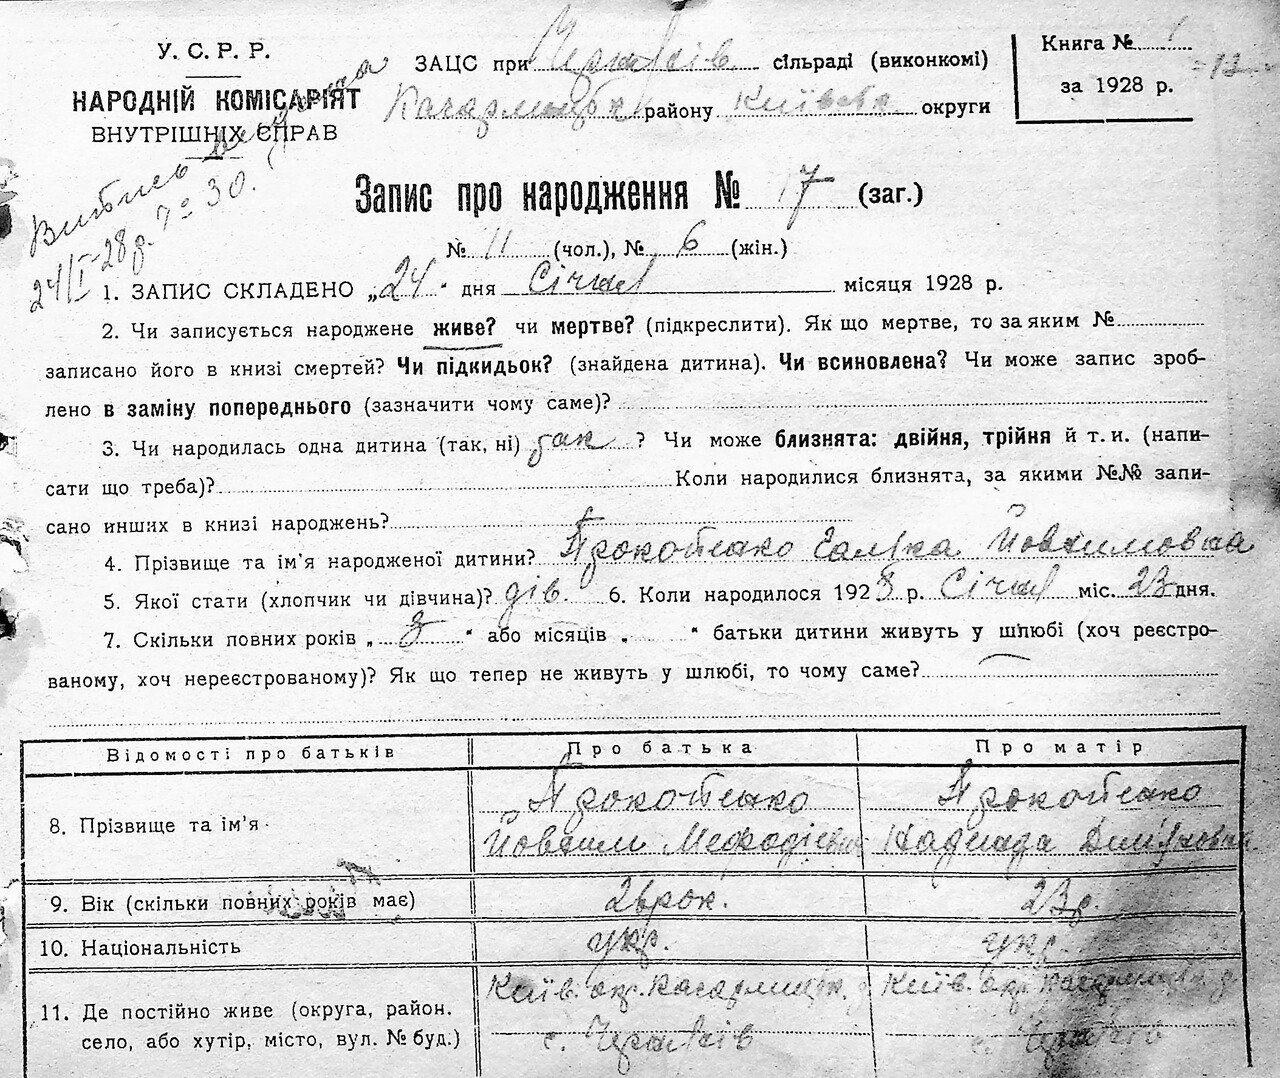 У. С. Р. Р.
НАРОДНІЙ КОМІСАРІЯТ
ВНУТРІШНІХ СПРАВ
ЗАЦС при сільраді (виконкомі)
Кагарлицьк району Київськ округи
Книга № 1
за 1928 р.
Випись видана
24/I-28р. № 30.
Запис про народження № 17 (заг.)
№ 11 (чол.), № 6 (жін.)
1. ЗАПИС СКЛАДЕНО „24" дня Січня місяця 1928 р.
2. Чи записується народжене живе? чи мертве? (підкреслити). Як що мертве, то за яким №
записано його в книзі смертей? Чи підкидьок? (знайдена дитина). Чи всиновлена? Чи може запис зроб-
лено в заміну попереднього (зазначити чому саме)?
3. Чи народилась одна дитина (так, ні) так ? Чи може близнята: двійня, трійня й т. и. (напи-
сати що треба)? Коли народилися близнята, за якими №№ запи-
сано инших в книзі народжень?
4. Прізвище та ім'я народженої дитини? Прокопенко Галька Йовхимовна
5. Якої стати (хлопчик чи дівчина)? дів. 6. Коли народилося 1928 р. Січня міс. 23 дня.
7. Скільки повних років „ 3 " або місяців „ " батьки дитини живуть у шлюбі (хоч реєстро-
ваному, хоч нереєстрованому)? Як що тепер не живуть у шлюбі, то чому саме?
Відомості про батьків Про батька Про матір
8. Прізвище та ім'я Прокопенко Йовхим Мефодієвич Прокопенко Надежда Демяновна
9. Вік (скільки повних років має) 26 рок. 23 р.
10. Національність укр. укр.
11. Де постійно живе (округа, район. Київ. окр. Кагарлицьк. р. Київ. окр. Кагарлицьк р.
село, або хутір, місто, вул. № буд.) с. с.